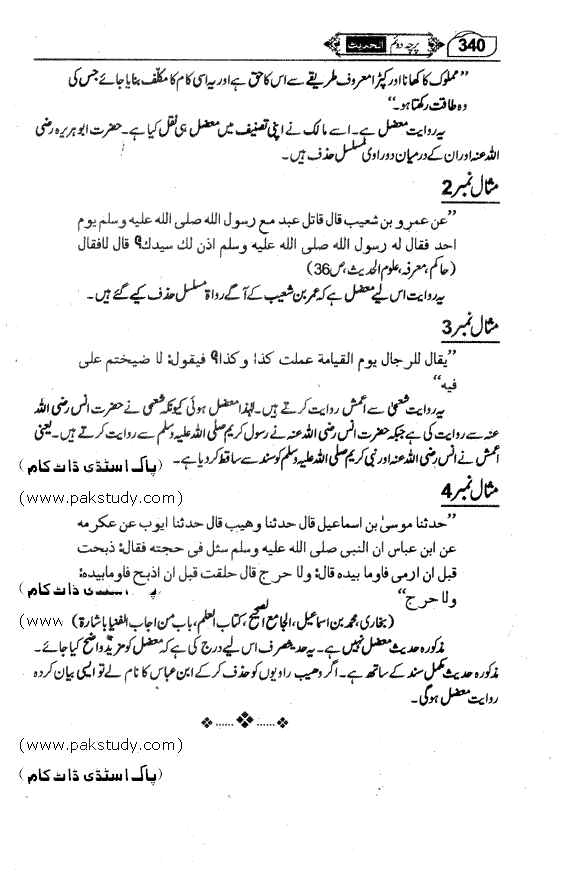 340 الحدیث پرچہ دوئم
”مملوک کا کھانا اور کپڑا معروف طریقے سے اس کا حق ہے اور یہ اسی کام کا مکلف بنایا جائے جس کی
وہ طاقت رکھتا ہو۔“
یہ روایت معضل ہے۔ اسے مالک نے اپنی تصنیف میں معضل ہی نقل کیا ہے۔ حضرت ابو ہریرہ رضی
اللہ عنہ اور ان کے درمیان دو راوی مسلسل حذف ہیں۔
مثال نمبر 2
”عن عمرو بن شعيب قال قاتل عبد مع رسول الله صلى الله عليه وسلم يوم
احد فقال له رسول الله صلى الله عليه وسلم اذن لك سيدك؟ قال لافقال
(حاکم، معرفہ، علوم الحدیث، ص36)
یہ روایت اس لیے معضل ہے کہ عمر بن شعیب کے آگے رواۃ مسلسل حذف کیے گئے ہیں۔
مثال نمبر 3
”يقال للرجال يوم القيامة عملت كذا وكذا؟ فيقول: لا ضيختم على
فيه“
یہ روایت شعمیٰ سے اعمش روایت کرتے ہیں۔ لہٰذا معضل ہوئی کیونکہ شعمی نے حضرت انس رضی اللہ
عنہ سے روایت کی ہے جبکہ حضرت انس رضی اللہ عنہ نے رسول کریم صلی اللہ علیہ وسلم سے روایت کرتے ہیں۔ یعنی
اعمش نے انس رضی اللہ عنہ اور نبی کریم صلی اللہ علیہ وسلم کو سند سے ساقط کر دیا ہے۔
(پاک اسٹڈی ڈاٹ کام)
مثال نمبر 4
(www.pakstudy.com)
”حدثنا موسىٰ بن اسماعيل قال حدثنا وهيب قال حدثنا ايوب عن عكرمه
عن ابن عباس ان النبى صلى الله عليه وسلم سئل فى حجته فقال: ذبحت
قبل ان ارمى فاوما بيده قال: ولا حرج قال حلقت قبل ان اذبح فاومابيده:
ولا حرج“
(پاک اسٹڈی ڈاٹ کام)
(بخاری، محمد بن اسماعیل، الجامع الصحیح، کتاب العلم، باب من اجاب الفتیا باشارۃ)
(www
مذکورہ حدیث معضل نہیں ہے۔ یہ حدیث صرف اس لیے درج کی ہے کہ معضل کو مزید واضح کیا جائے۔
مذکورہ حدیث مکمل سند کے ساتھ ہے۔ اگر وھیب راویوں کو حذف کر کے ابن عباس کا نام لے تو ایسی بیان کردہ
روایت معضل ہوگی۔
(www.pakstudy.com)
(پاک اسٹڈی ڈاٹ کام)